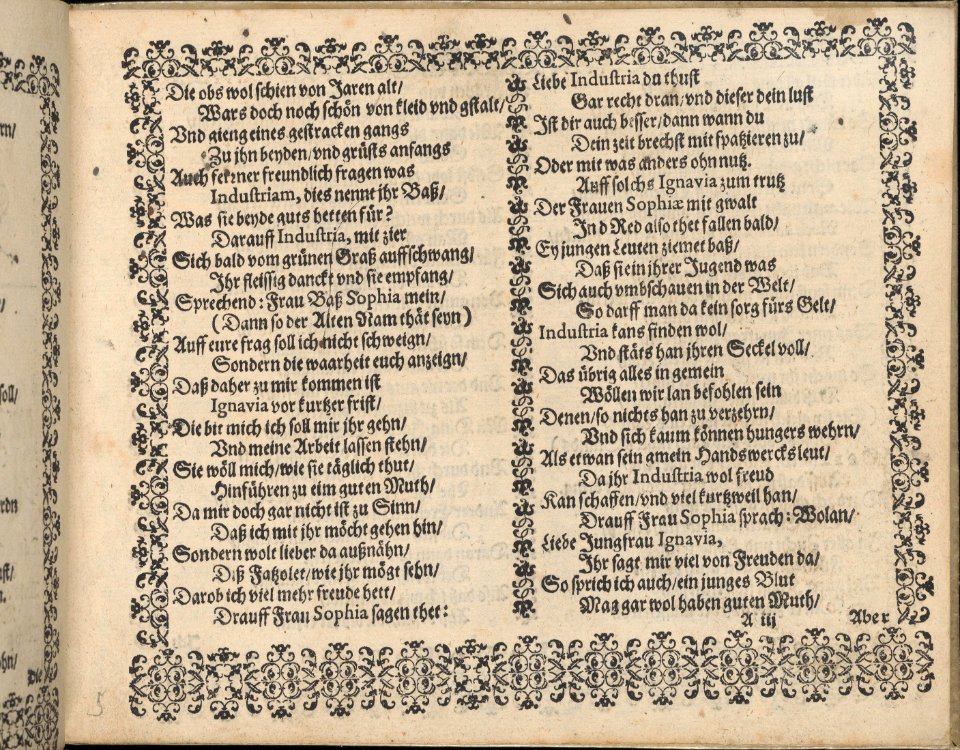 Die obs wol schien von Jaren alt/
Wars doch noch schön von kleid vnd gstalt/
Vnd gieng eines gestracken gangs
Zu jhn beyden/vnd grüsts anfangs
Auch ferrner freundlich fragen was
Industriam, dies nennt jhr Baß/
Was sie beyde guts hetten für?
Darauff Industria, mit zier
Sich bald vom grünen Graß auffschwang/
Ihr fleissig danckt vnd sie empfang/
Sprechend: Frau Baß Sophia mein/
(Dann so der Alten Nam thät seyn)
Auff eure frag soll ich nicht schweign/
Sondern die waarheit euch anzeign/
Daß daher zu mir kommen ist
Ignavia vor kurtzer frist/
Die bit mich ich soll mir jhr gehn/
Vnd meine Arbeit lassen stehn/
Sie wöll mich/wie sie täglich thut/
Hinführen zu eim guten Muth/
Da mir doch gar nicht ist zu Sinn/
Daß ich mit jhr möcht gehen hin/
Sondern wolt lieber da außnähn/
Diß Fatzolet/wie jhr mögt sehn/
Darob ich viel mehr freude hett/
Drauff Frau Sophia sagen thet:
Liebe Industria du thust
Gar recht dran/vnd dieser dein lust
Ist dir auch besser/dann wann du
Dein zeit brechst mit spatzieren zu/
Oder mit was anders ohn nutz.
Auff solchs Ignavia zum trutz
Der Frauen Sophiæ mit gwalt
In d Red also thet fallen bald/
Ey jungen Leuten ziemet baß/
Daß sie in jhrer Jugend was
Sich auch vmbschauen in der Welt/
So darff man da kein sorg fürs Gelt/
Industria kans finden wol/
Vnd stäts han jhren Seckel voll/
Das übrig alles in gemein
Wöllen wir lan befohlen sein
Denen/so nichts han zu verzehrn/
Vnd sich kaum können hungers wehrn/
Als etwan sein gmein Handswercksleut/
Da jhr Industria wol freud
Kan schaffen/vnd viel kurtzweil han/
Drauff Frau Sophia sprach: Wolan/
Liebe Jungfrau Ignavia,
Ihr sagt mir viel von Freuden da/
So sprich ich auch/ein junges Blut
Mag gar wol haben guten Muth/
A iij
Aber